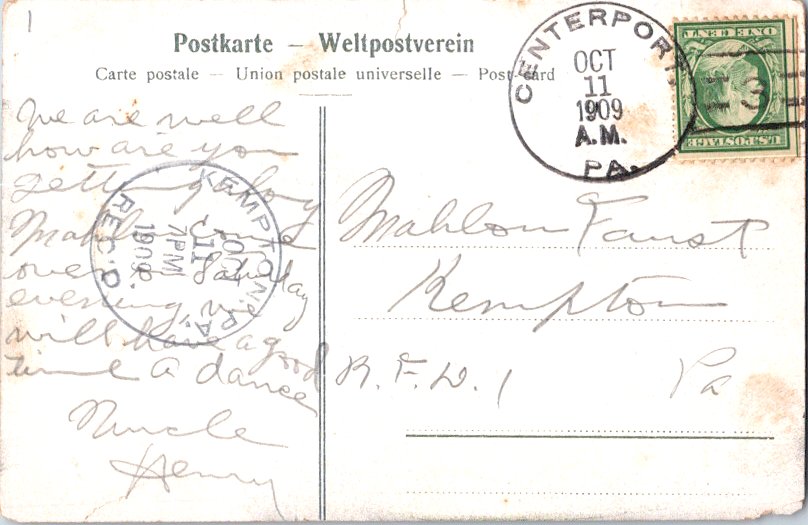 1
Postkarte – Weltpostverein
Carte postale – Union postale universelle – Post-card
CENTERPORT
OCT
11
1909
A.M.
PA.
ONE CENT
U.S. POSTAGE
3
We are well
how are you
getting along
Mahlon come
over on Saturday
evening we
will have a good
time a dance
Nuncle
Henry
KEMPTON, PA.
OCT
11
7PM
1909
REC'D.
Mahlon Faust
Kempton
R. F. D. 1 Pa